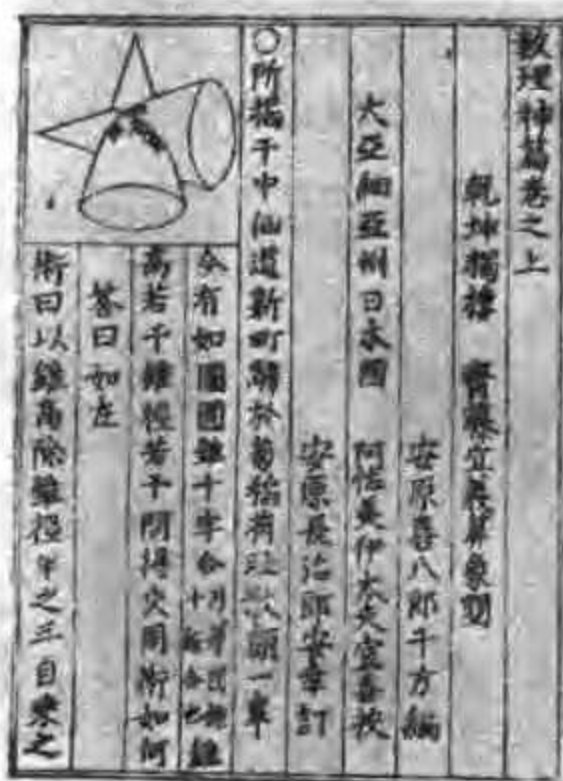 数理神篇巻之上
乾坤獨樓 齋藤宜義算象閲
安原喜八郎千方編
大亞細亞州日本國 阿佐美伊太夫宣喜校
安原長治郎安章訂
〇所掲于中仙道新町 稲荷社 題一事
今有如圖圓錐十字合 錐
高若干錐徑若干問得穴周術如何
答曰如左
術曰以錐高除錐徑半之三自乗之